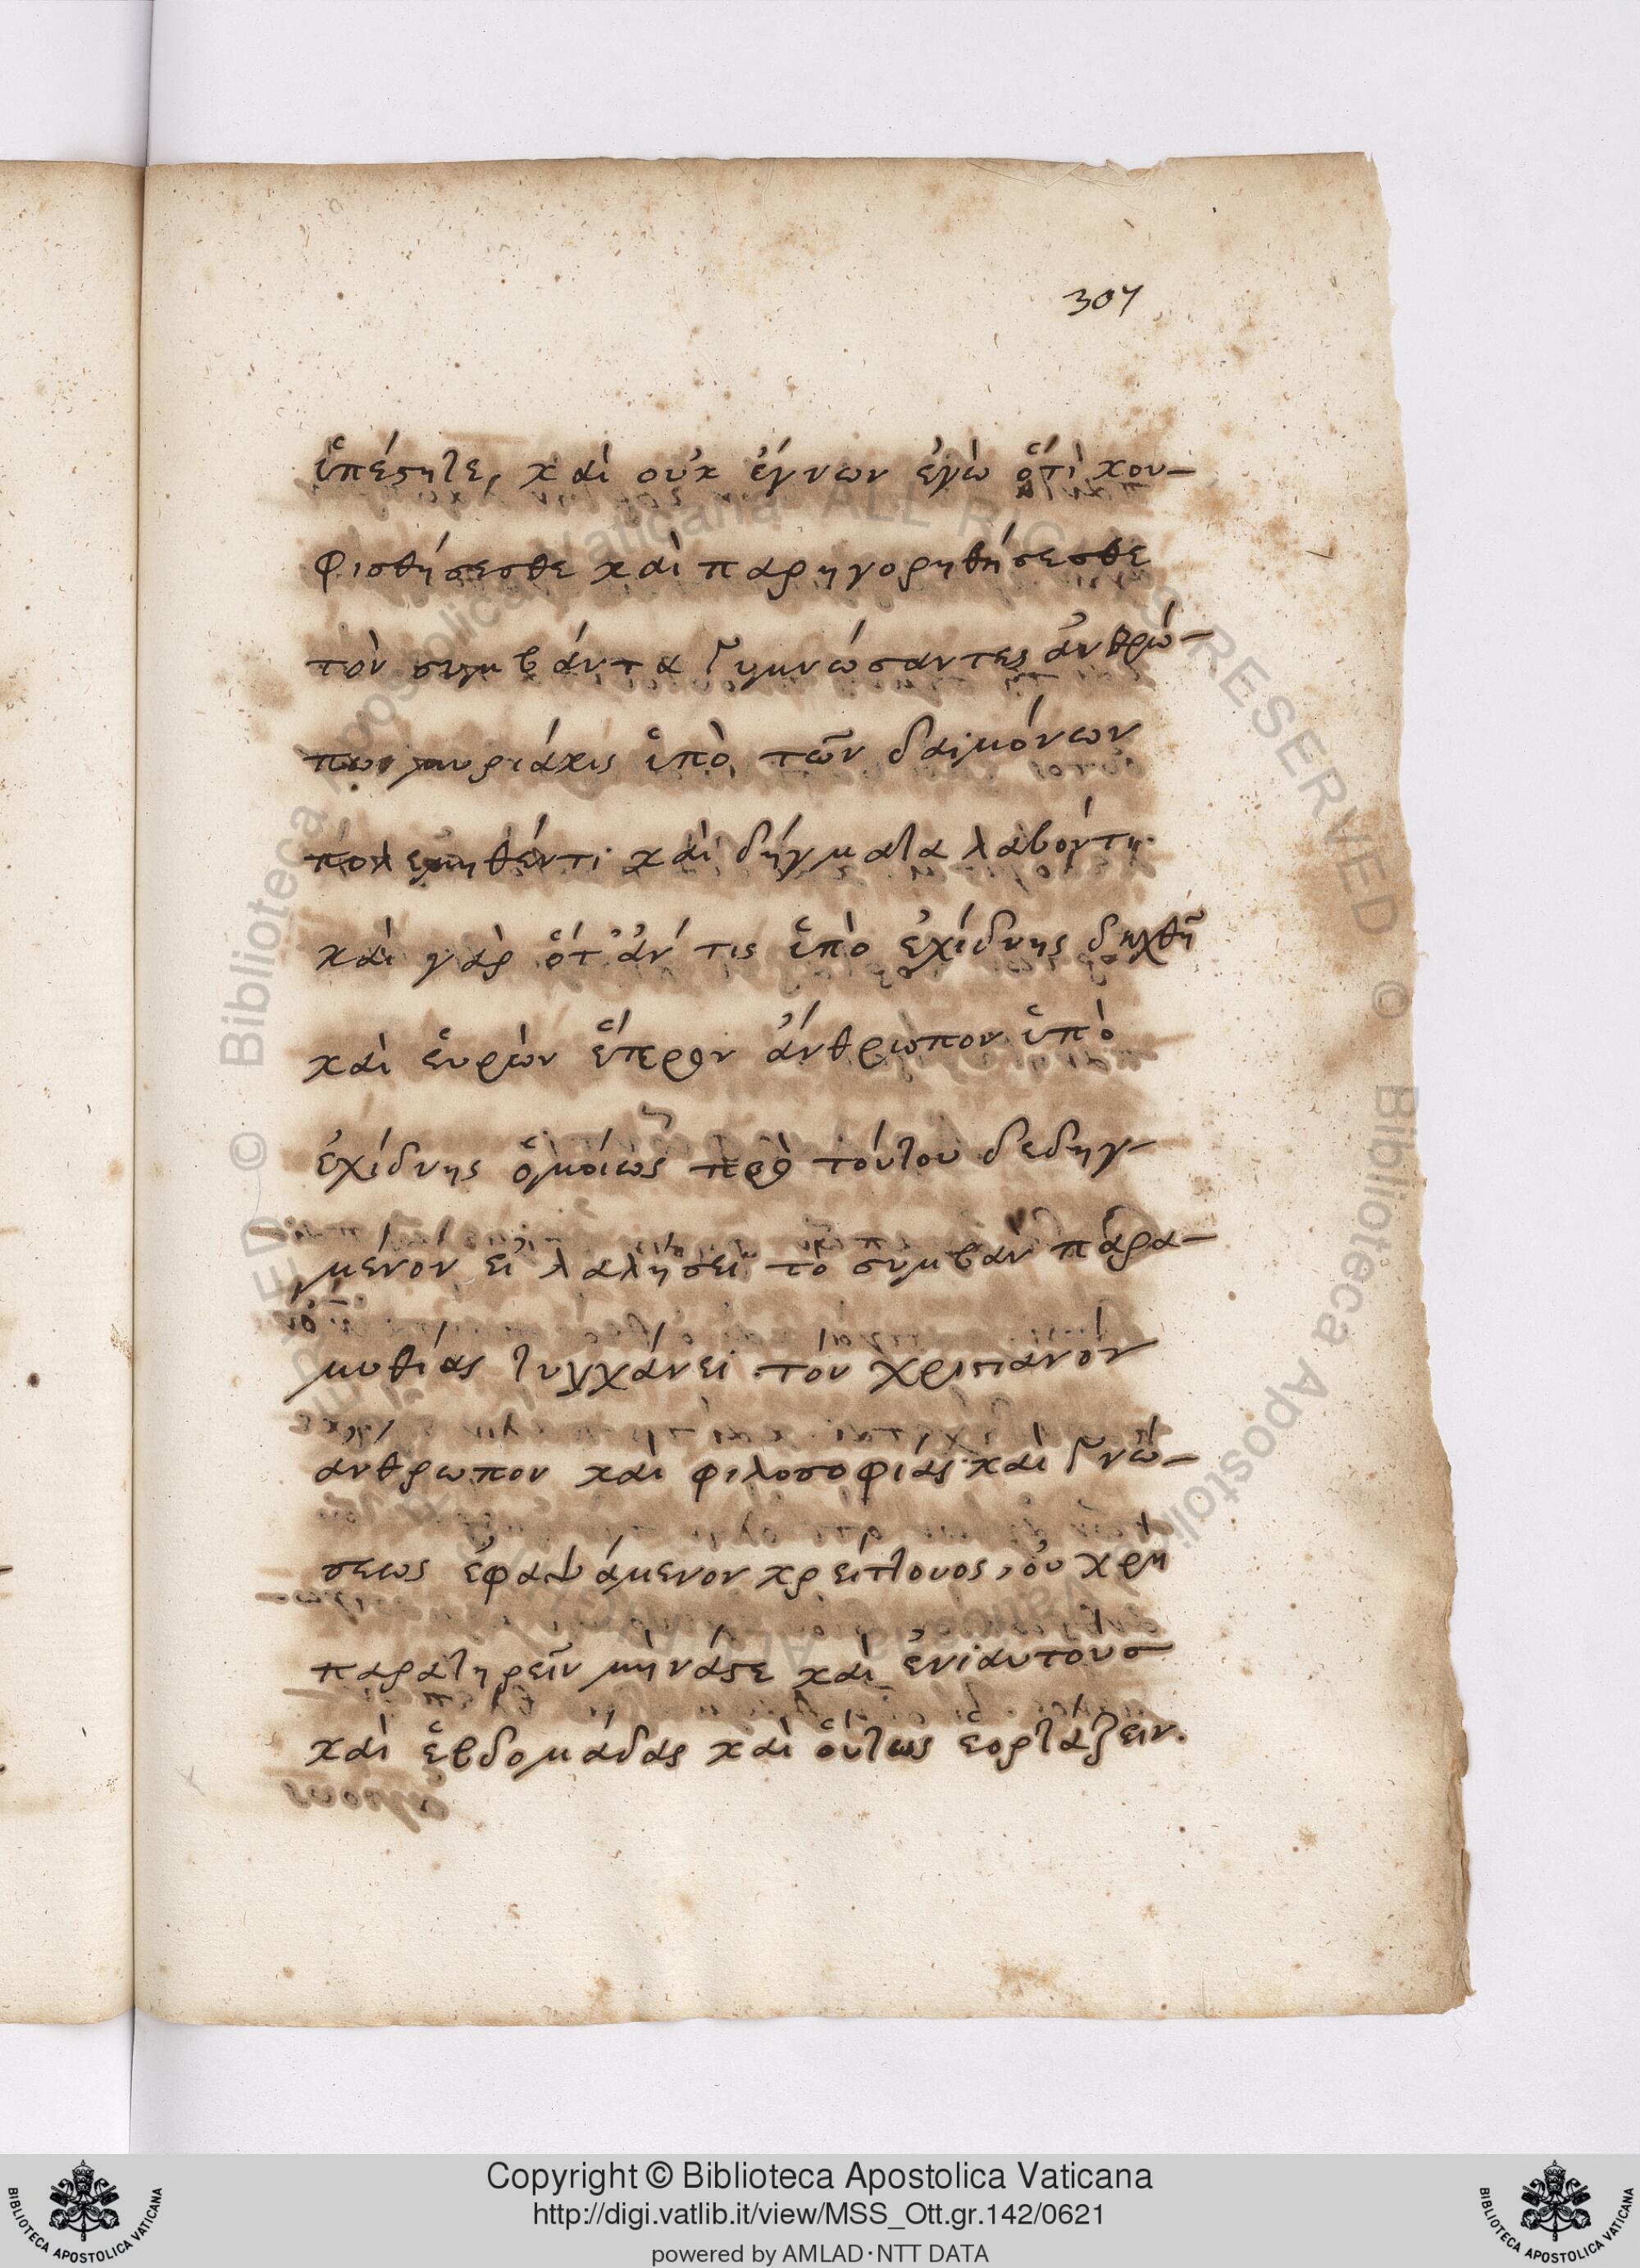 307
ὑπέστητε, καὶ οὐκ ἔγνων ἐγὼ ὅτι κου-
φισθήσεσθε καὶ παρηγορηθήσεσθε
τὸν συμβάντα γυμνώσαντες ἀνθρώ-
πωι μυριάκις ὑπὸ τῶν δαιμόνων
πολεμηθέντι καὶ δήγματα λαβόντι.
καὶ γὰρ ὅτ' ἄν τις ὑπὸ ἐχίδνης δηχθῇ
καὶ εὑρὼν ἕτερον ἄνθρωπον ὑπὸ
ἐχίδνης ὁμοίως πρὸ τούτου δεδηγ-
μένον εἰ λαλήσει τὸ συμβὰν παρα-
μυθίας τυγχάνει τὸν χριστιανὸν
ἄνθρωπον καὶ φιλοσοφίας καὶ γνώ-
σεως ἐφαψάμενον κρείττονος, οὐ χρὴ
παρατηρεῖν μῆνάς τε καὶ ἐνιαυτοὺς
καὶ ἑβδομάδας καὶ οὕτως ἑορτάζειν.
Copyright © Biblioteca Apostolica Vaticana
http://digi.vatlib.it/view/MSS_Ott.gr.142/0621
powered by AMLAD·NTT DATA
BIBLIOTECA APOSTOLICA VATICANA
BIBLIOTECA APOSTOLICA VATICANA